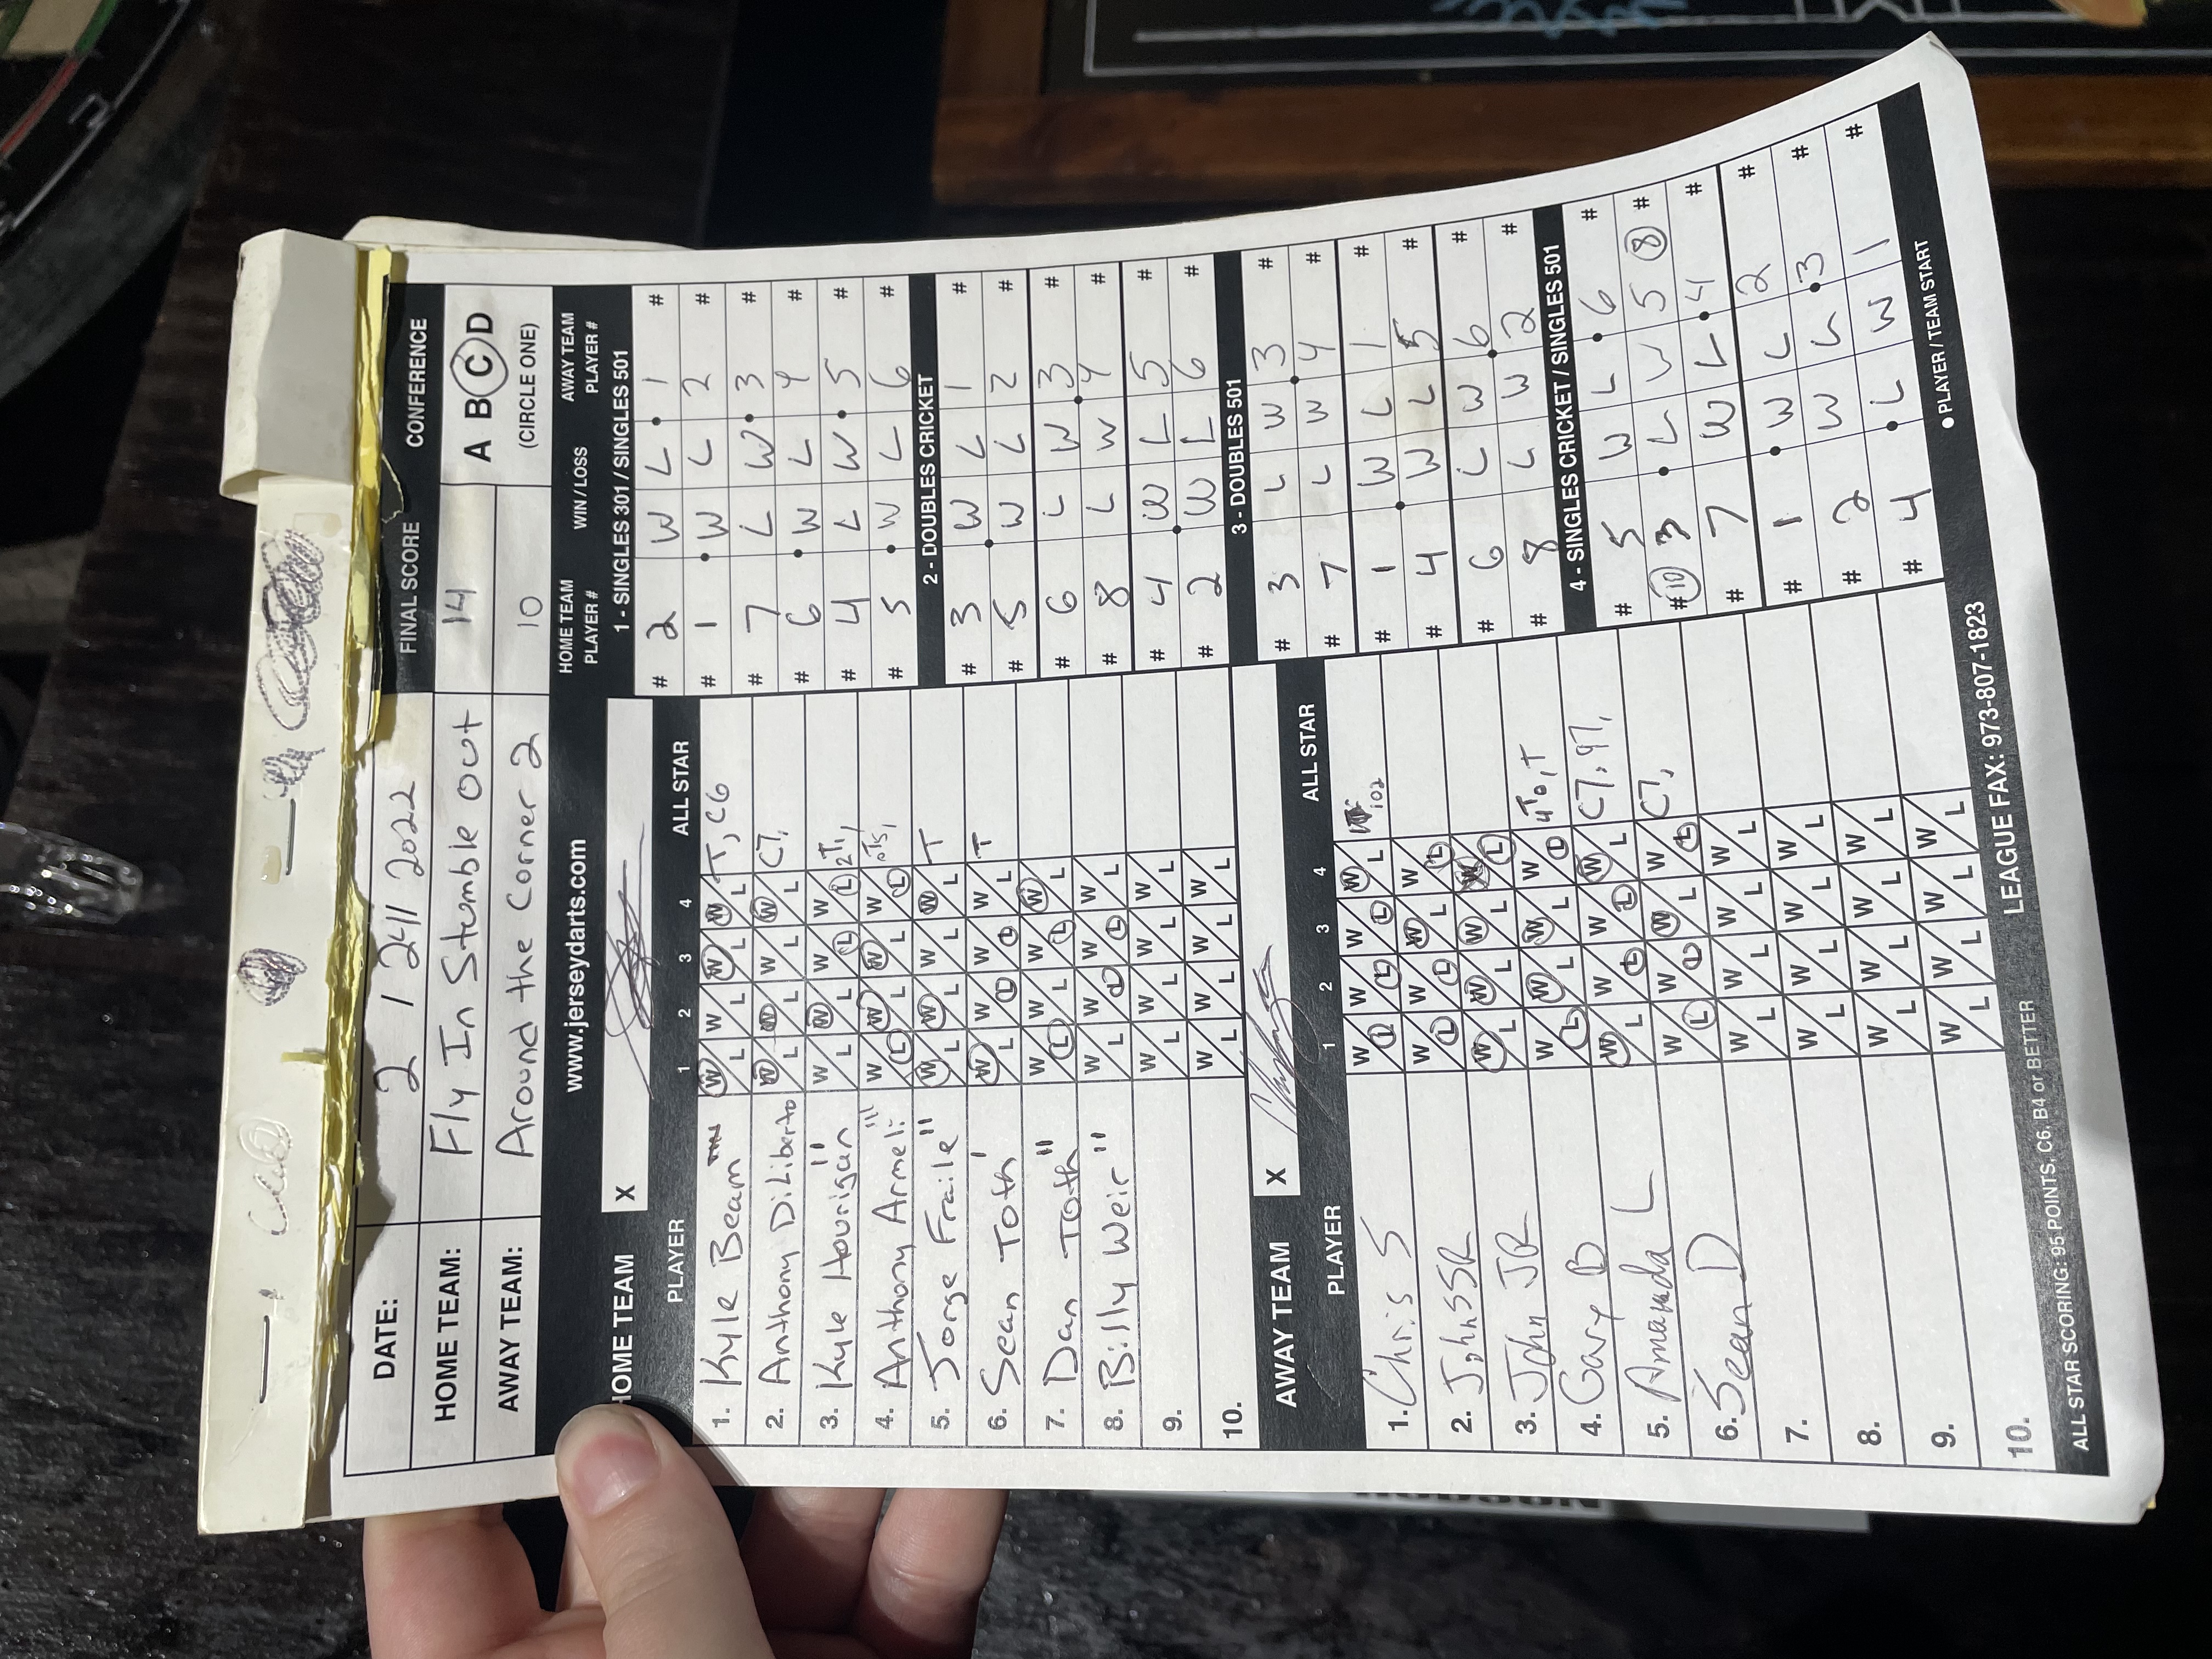 DATE: 2 / 24 / 2022 FINAL SCORE CONFERENCE
HOME TEAM: Fly In Stumble Out 14 A B C D
AWAY TEAM: Around the Corner 2 10 (CIRCLE ONE)
www.jerseydarts.com
HOME TEAM PLAYER # WIN / LOSS AWAY TEAM PLAYER #
HOME TEAM X
PLAYER 1 2 3 4 ALL STAR
1. Kyle Beam W L W L W L W L T, C6
2. Anthony DiLiberto W L W L W L W L C7,
3. Kyle Hourigan " W L W L W L W L 2T,
4. Anthony Armeli "" W L W L W L W L
5. Jorge Fraile " W L W L W L W L T
6. Sean Toth ' W L W L W L W L T
7. Dan Toth " W L W L W L W L
8. Billy Weir " W L W L W L W L
9. W L W L W L W L
10. W L W L W L W L
AWAY TEAM X
PLAYER 1 2 3 4 ALL STAR
1. Chris S W L W L W L W L 102
2. John SR W L W L W L W L
3. John JR W L W L W L W L
4. Gary B W L W L W L W L
5. Amanda L W L W L W L W L
6. Sean D W L W L W L W L
7. W L W L W L W L
8. W L W L W L W L
9. W L W L W L W L
10. W L W L W L W L
4T, T
C7, 97,
C7,
1 - SINGLES 301 / SINGLES 501
# 2 W L 1 #
# 1 W L 2 #
# 7 L W 3 #
# 6 W L 4 #
# 4 L W 5 #
# 5 W L 6 #
2 - DOUBLES CRICKET
# 3 W L 1 #
# 5 W L 2 #
# 6 L W 3 #
# 8 L W 4 #
# 4 W L 5 #
# 2 W L 6 #
3 - DOUBLES 501
# 3 L W 3 #
# 7 L W 4 #
# 1 W L 1 #
# 4 W L 5 #
# 6 L W 6 #
# 8 L W 2 #
4 - SINGLES CRICKET / SINGLES 501
# 5 W L 6 #
# 10 3 L W 5 8 #
# 7 W L 4 #
# 1 W L 2 #
# 2 W L 3 #
# 4 L W 1 #
PLAYER / TEAM START
ALL STAR SCORING: 95 POINTS, C6, B4 or BETTER LEAGUE FAX: 973-807-1823